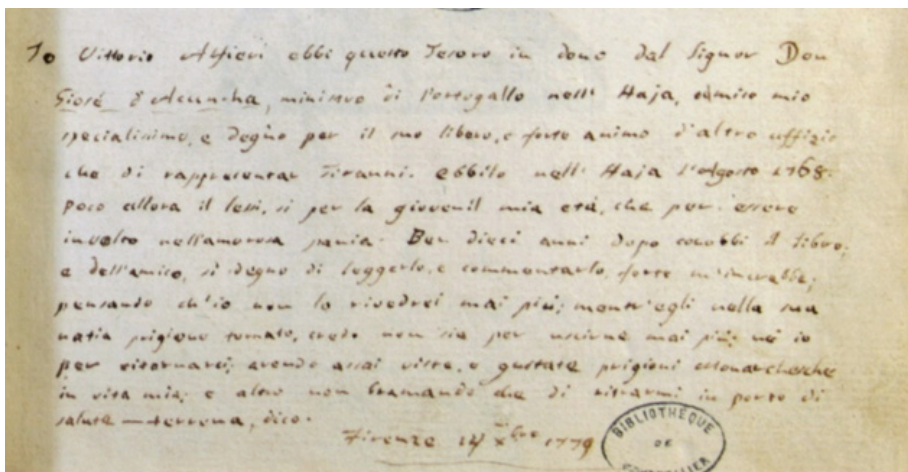 Io Vittorio Alfieri ebbi questo Tesoro in dono dal Signor Don
Giosé d'Acuncha, ministro di Portogallo nell' Haja, amico mio
specialissimo, e degno per il suo libero, e forte animo d'altro uffizio
che di rappresentar Tiranni. ebbilo nell' Haja l'Agosto 1768.
poco allora il lessi, sì per la giovenil mia età, che per essere
involto nell'amorosa pania. Ben dieci anni dopo conobbi il libro;
e dell'amico, sì degno di leggerlo, e commentarlo, forte m'increbbe;
pensando ch'io non lo rivedrei mai più; mentr'egli nella sua
natia prigione tornato, credo non sia per uscirne mai più; nè io
per ritornarci; avendo assai viste, e gustate prigioni monarchesche
in vita mia; e altro non bramando che di ritrarmi in porto di
salute—terrena, dico.
Firenze 17 Xbre 1779
BIBLIOTHÈQUE
DE
MONTPELLIER